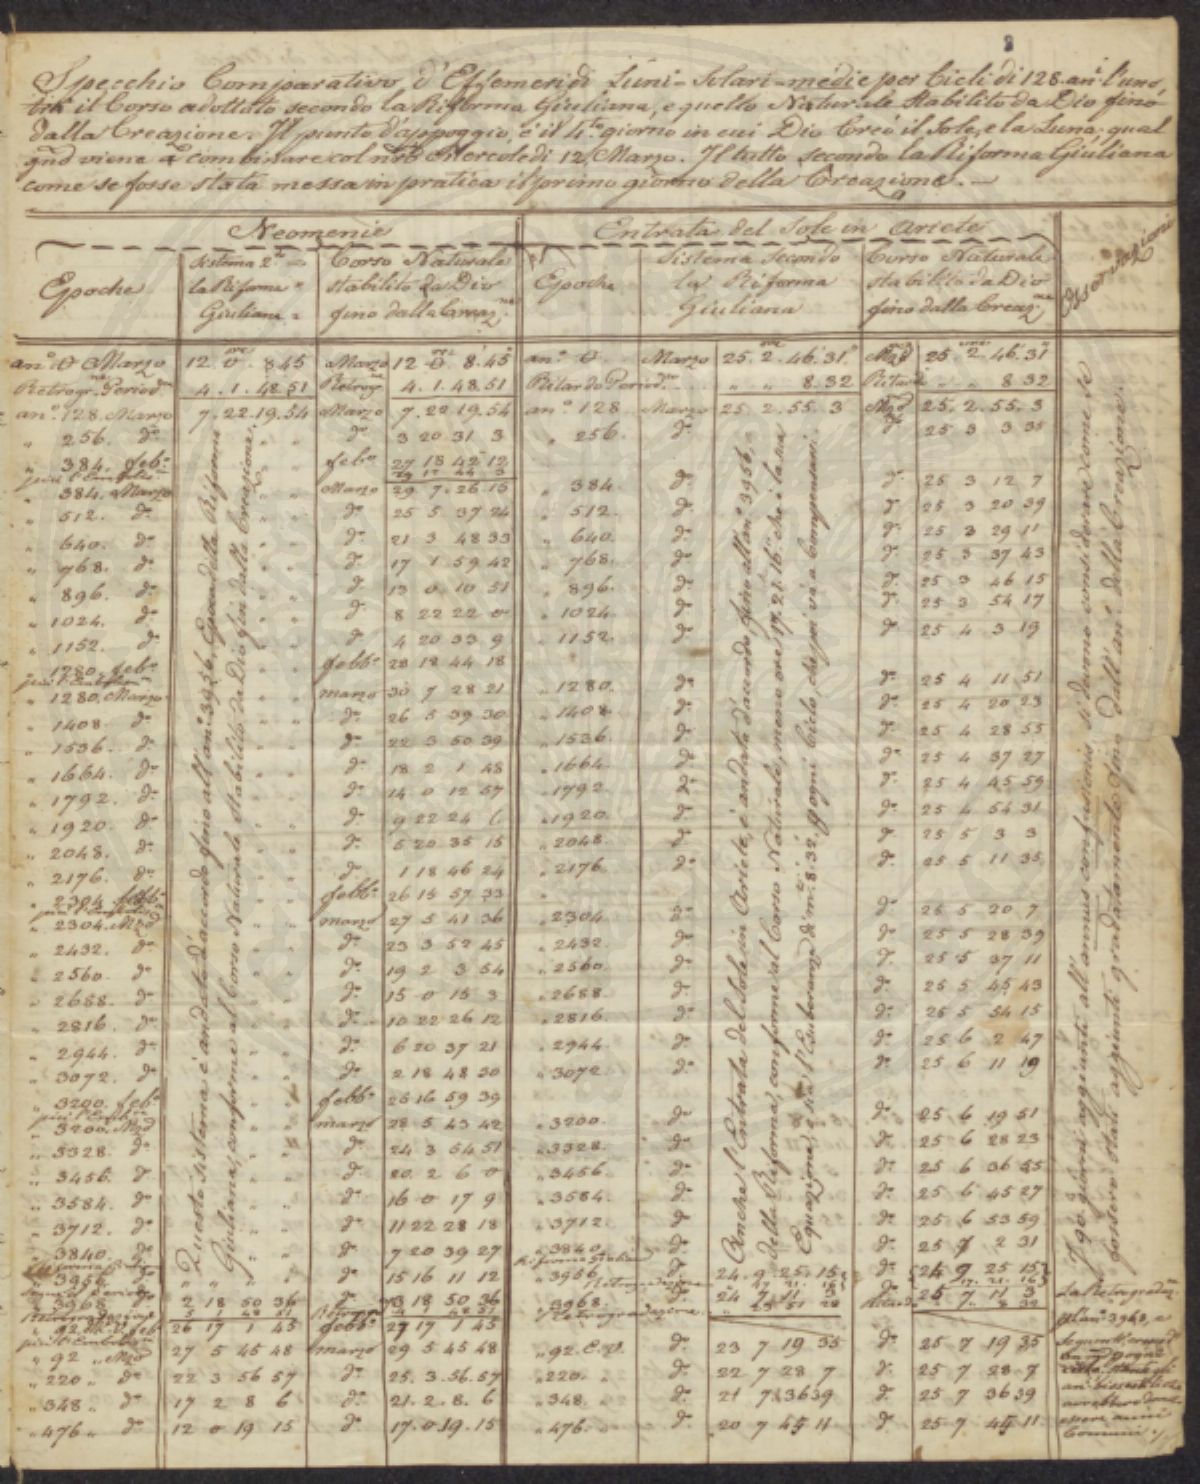 Specchio Comparativo d'Effemeridi Luni-Solari-medie per Cicli di 128 an: l'uno,
il Corso adottato secondo la Riforma Giuliana, e quello Naturale stabilito da Dio fino
dalla Creazione. Il punto d'appoggio, è il 4.to giorno in cui Dio Creò il Sole, e la Luna; qual
viene a combinare col Mercoledi 12 Marzo. Il tutto secondo la Riforma Giuliana
come se fosse stata messa in pratica il primo giorno della Creazione.
Neomenie Entrata del Sole in Ariete
Epoche Sistema 2.do la Riforma Giuliana Corso Naturale stabilito da Dio fino dalla Creaz.ne Epoche Sistema Secondo la Riforma Giuliana Corso Naturale stabilito da Dio fino dalla Creaz.ne Osservazioni
an.o 0 Marzo 12. 0. 8.45 Marzo 12 0. 8.45 an.o 0. Marzo 25. 2. 46. 31. Mzo 25 2. 46. 31
Retrogr. Period. 4. 1. 48. 51 Retrog. 4. 1. 48. 51 Ritardo Period. " " 8. 32 Ritardo " " 8 32
an.o 128. Marzo 7. 22. 19. 54 Marzo 7. 22 19. 54 an.o 128 Marzo 25. 2. 55. 3 Mzo 25. 2. 55. 3
" 256. do do 3 20 31 3 " 256. do do 25 3 3 35
" 384. feb.o feb.o 27 18 42 12
" 384. Marzo Marzo 29 7. 26 15 " 384 do do 25 3 12 7
" 512. do do 25 5 37 24 " 512. do do 25 3 20 39
" 640. do do 21 3 48 33 " 640. do do 25 3 29 11
" 768. do do 17 1 59 42 " 768. do do 25 3 37 43
" 896. do do 13 0 10 51 " 896. do do 25 3 46 15
" 1024. do do 8 22 22 0 " 1024. do do 25 3 54 17
" 1152. do do 4 20 33 9 " 1152. do do 25 4 3 19
" 1280. feb.o febb.o 28 18 44 18
" 1280. Marzo marzo 30 7 28 21 " 1280. do do 25 4 11 51
" 1408 do do 26 5 39 30 " 1408. do do 25 4 20 23
" 1536. do do 22 3 50 39 " 1536. do do 25 4 28 55
" 1664. do do 18 2 1 48 " 1664. do do 25 4 37 27
" 1792. do do 14 0 12 57 " 1792. do do 25 4 45 59
" 1920. do do 9 22 24 6 " 1920. do do 25 4 54 31
" 2048. do do 5 20 35 15 " 2048. do do 25 5 3 3
" 2176. do do 1 18 46 24 " 2176. do do 25 5 11 35
" 2304. febb.o febb.o 26 15 57 33
" 2304. Mzo marzo 27 5 41 36 " 2304 do do 25 5 20 7
" 2432. do do 23 3 52 45 " 2432. do do 25 5 28 39
" 2560. do do 19 2 3 54 " 2560. do do 25 5 37 11
" 2688. do do 15 0 15 3 " 2688. do do 25 5 45 43
" 2816. do do 10 22 26 12 " 2816. do do 25 5 54 15
" 2944. do do 6 20 37 21 " 2944. do do 25 6 2 47
" 3072. do do 2 18 48 30 " 3072. do do 25 6 11 19
" 3200. feb.o febb.o 26 16 59 39
" 3200. Mzo marzo 28 5 43 42 " 3200. do do 25 6 19 51
" 3328. do do 24 3 54 51 " 3328. do do 25 6 28 23
" 3456. do do 20. 2 6 0 " 3456. do do 25 6 36 55
" 3584. do do 16 0 17 9 " 3584. do do 25 6 45 27
" 3712. do do 11 22 28 18 " 3712. do do 25 6 53 59
" 3840. do do 7 20 39 27 " 3840. do do 25 7 2 31
" 3956. do do 15 16 11 12 " 3956. 24. 9. 25. 15 24 9 25 15
" 3968. 2 18 50 36 3 18 50 36 " 3968. 24 7 11 3 25 7 11 3
" 92 26 17 1 45 febb.o 27 17 1 45
" 92 Mzo 27 5 45 48 marzo 29 5 45 48 " 92 do 23 7 19 35 do 25 7 19 35
" 220 " do 22 3 56 57 do 25. 3. 56. 57 " 220. " do 22 7 28 7 do 25 7 28 7
" 348 " do 17 2 8 6 do 21. 2. 8. 6 " 348. do 21 7 36 39 do 25 7 36 39
" 476 " do 12 0 19 15 do 17. 0. 19. 15 " 476. do 20 7 45 11 do 25 7 45 11
Questo sistema è andato d'accordo fino all'an.o 3956, Epoca della Riforma
Giuliana, conforme al Corso Naturale Stabilito da Dio fin dalla Creazione.
Anche l'Entrata del Sole in Ariete, è andata d'accordo fino all'an.o 3956,
della Riforma, conforme al Corso Naturale, meno ore 17. 21. 16. che è la sua
Equazione, e sia l'Esuberanza di m. 8. 32, p ogni Ciclo, che poi và a Compensarsi.
I 90. giorni aggiunti all'annus confusionis si devono considerare come se
fossero stati aggiunti gradatamente fino dall'an.o della Creazione.
La Retrogradaz.
an.o 3968, e
an. bissestili
avrebbero dovuto
essere anni
Comuni.